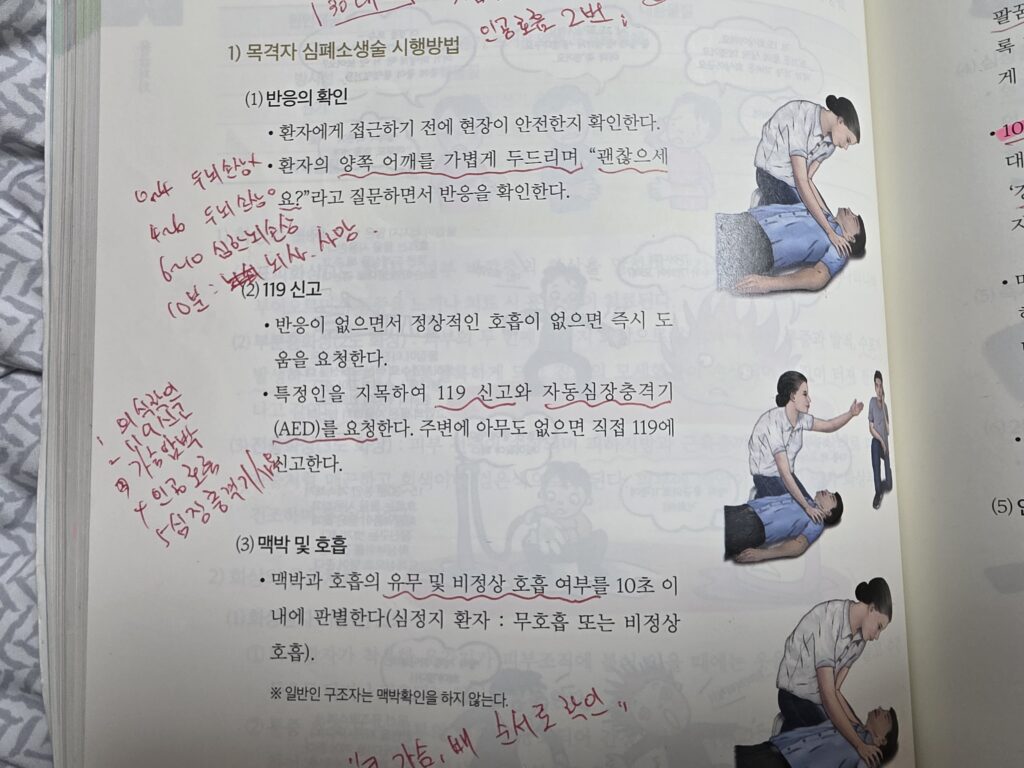 (30대
인공호흡 2번
1) 목격자 심폐소생술 시행방법
(1) 반응의 확인
• 환자에게 접근하기 전에 현장이 안전한지 확인한다.
• 환자의 양쪽 어깨를 가볍게 두드리며, “괜찮으세
요?”라고 질문하면서 반응을 확인한다.
0~4 두뇌손상x
4~6 두뇌손상o
6~10 심한뇌손상
10분 : 뇌사. 사망.
(2) 119 신고
• 반응이 없으면서 정상적인 호흡이 없으면 즉시 도
움을 요청한다.
• 특정인을 지목하여 119 신고와 자동심장충격기
(AED)를 요청한다. 주변에 아무도 없으면 직접 119에
신고한다.
1 의식확인
2 119신고
3 가슴압박
4 인공호흡
5 심장충격기사용
(3) 맥박 및 호흡
• 맥박과 호흡의 유무 및 비정상 호흡 여부를 10초 이
내에 판별한다(심정지 환자 : 무호흡 또는 비정상
호흡).
※ 일반인 구조자는 맥박확인을 하지 않는다.
가슴, 배 순서로 확인
팔꿈
록
게
• 10
대
자
(5)